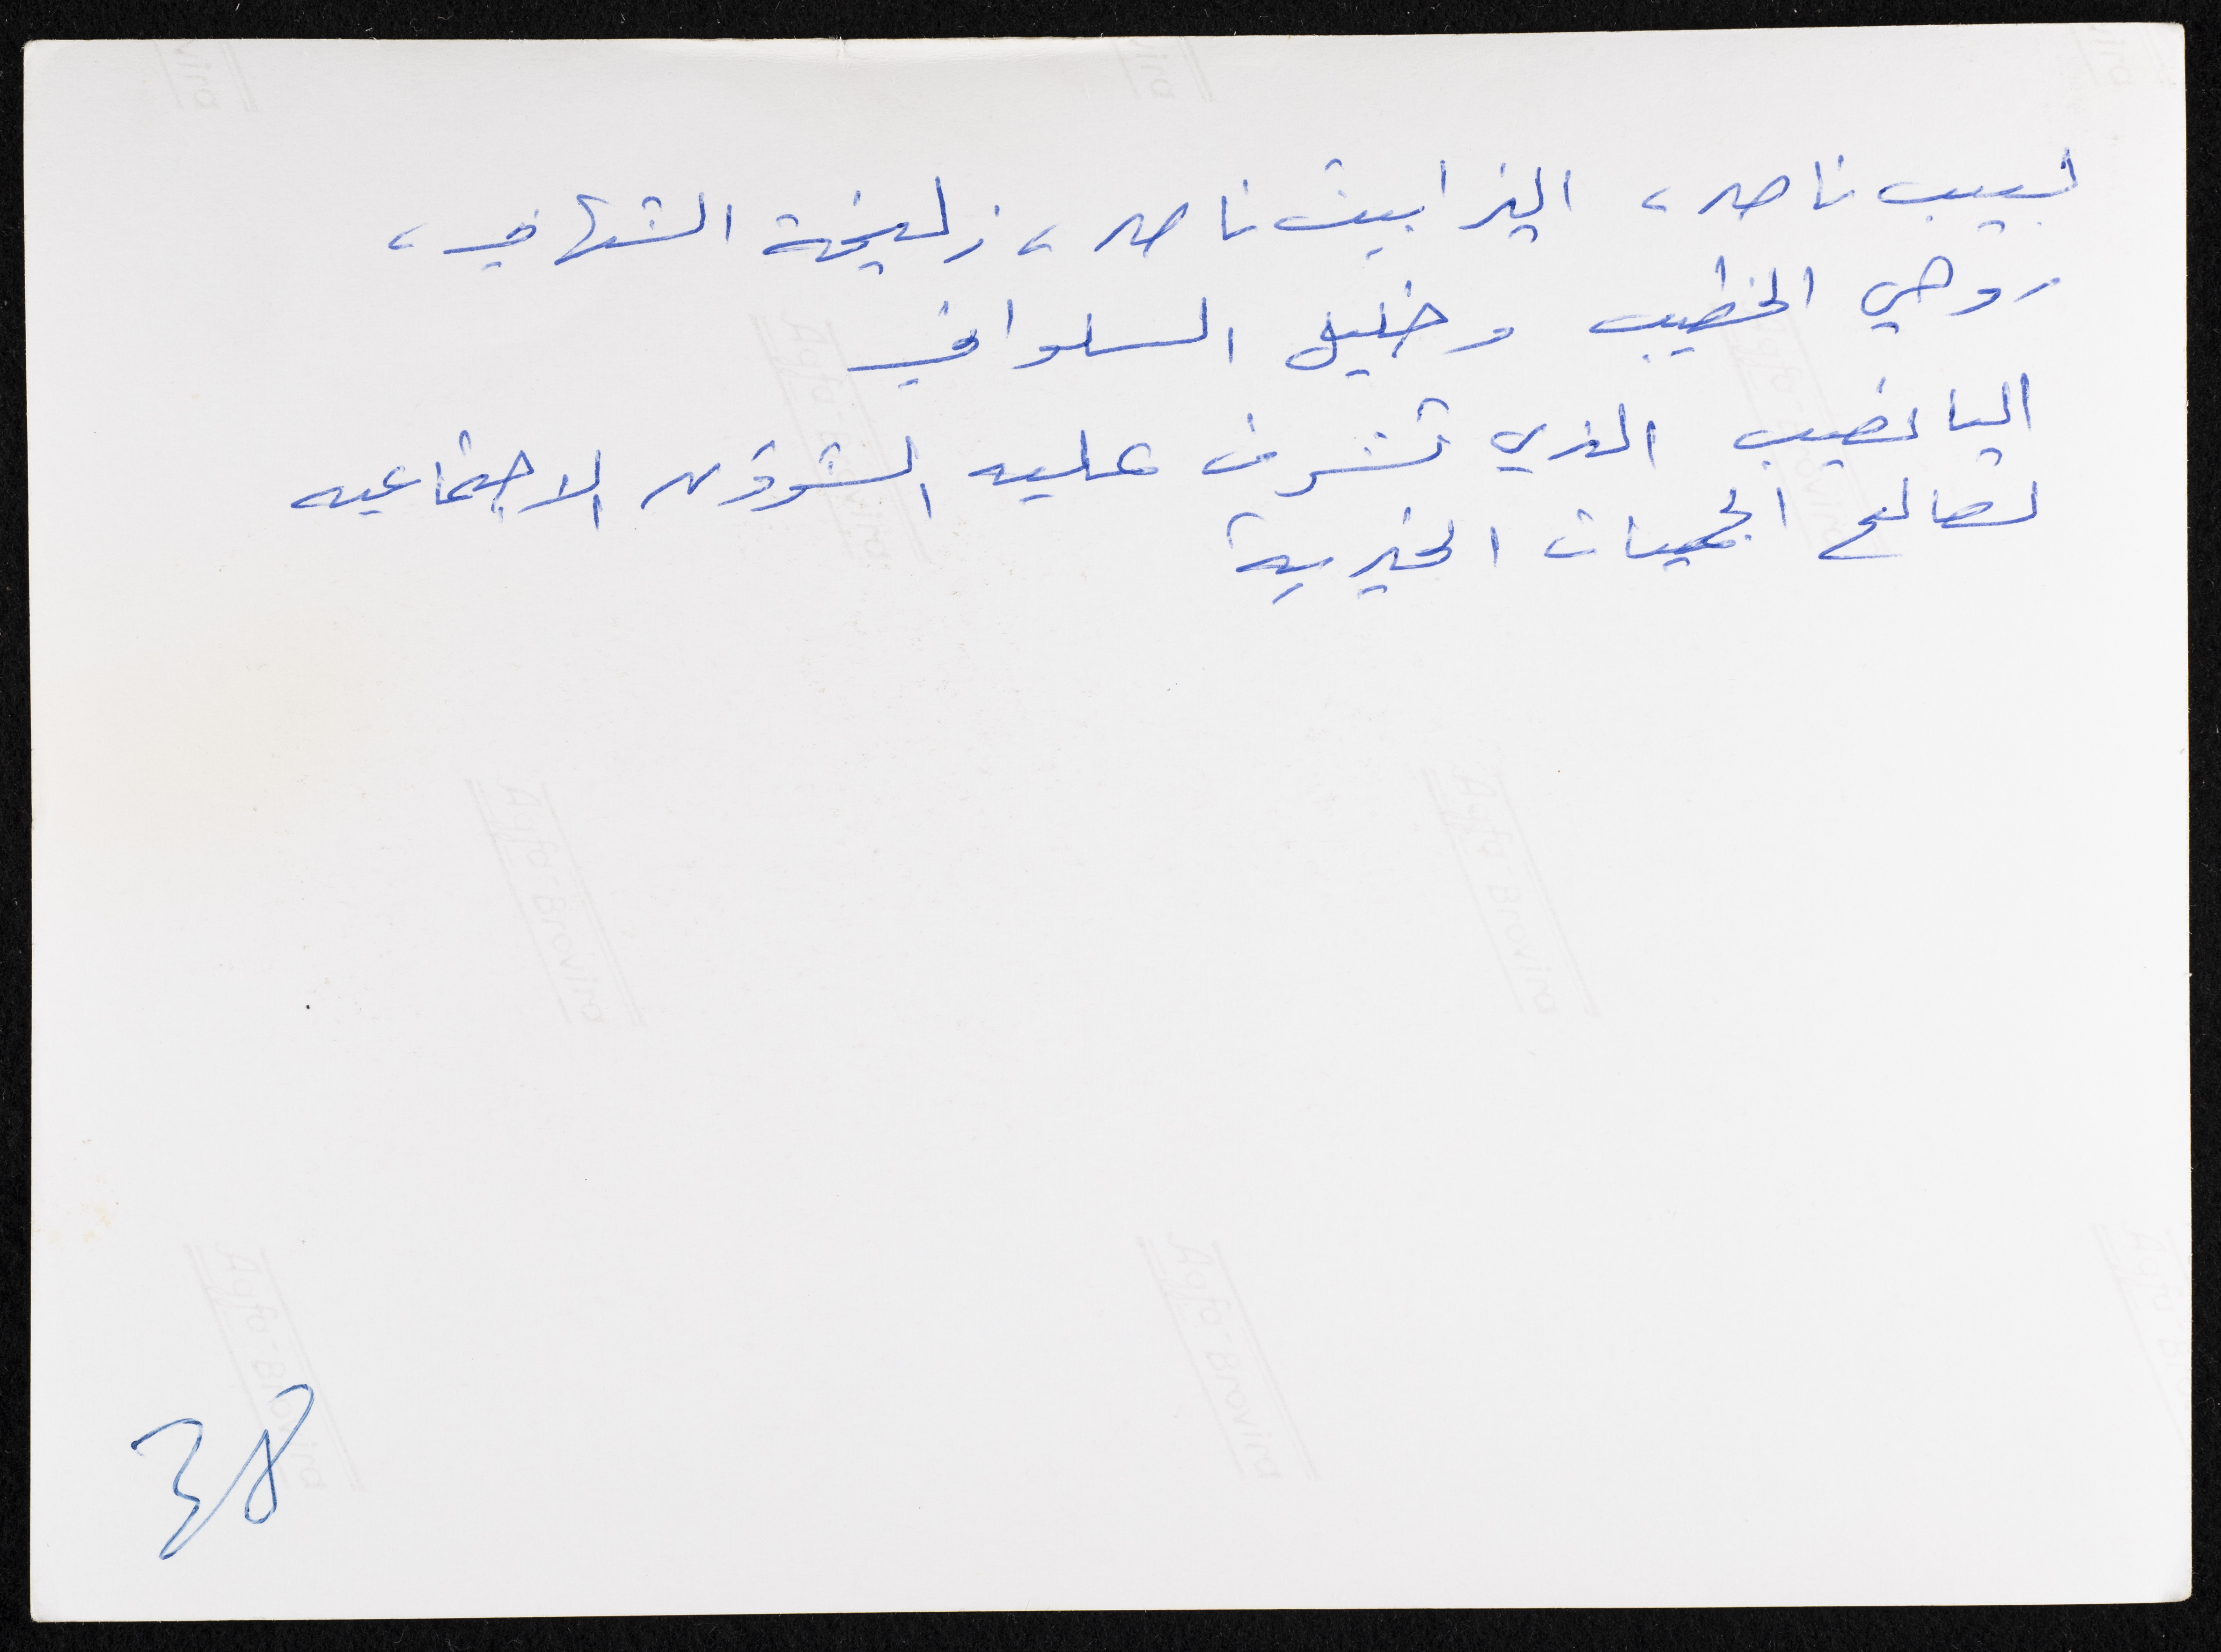 لبيب ناصر، اليزابيث ناصر، زليخة الشهابي،
روحي الخطيب وخليل السلواني
اليانصيب الذي تشرف عليه الشؤون الاجتماعيه
لصالح الجمعيات الخيرية
38
Agfa-Brovira
Agfa-Brovira
Agfa-Brovira
Agfa-Brovira
Agfa-Brovira
Agfa-Brovira